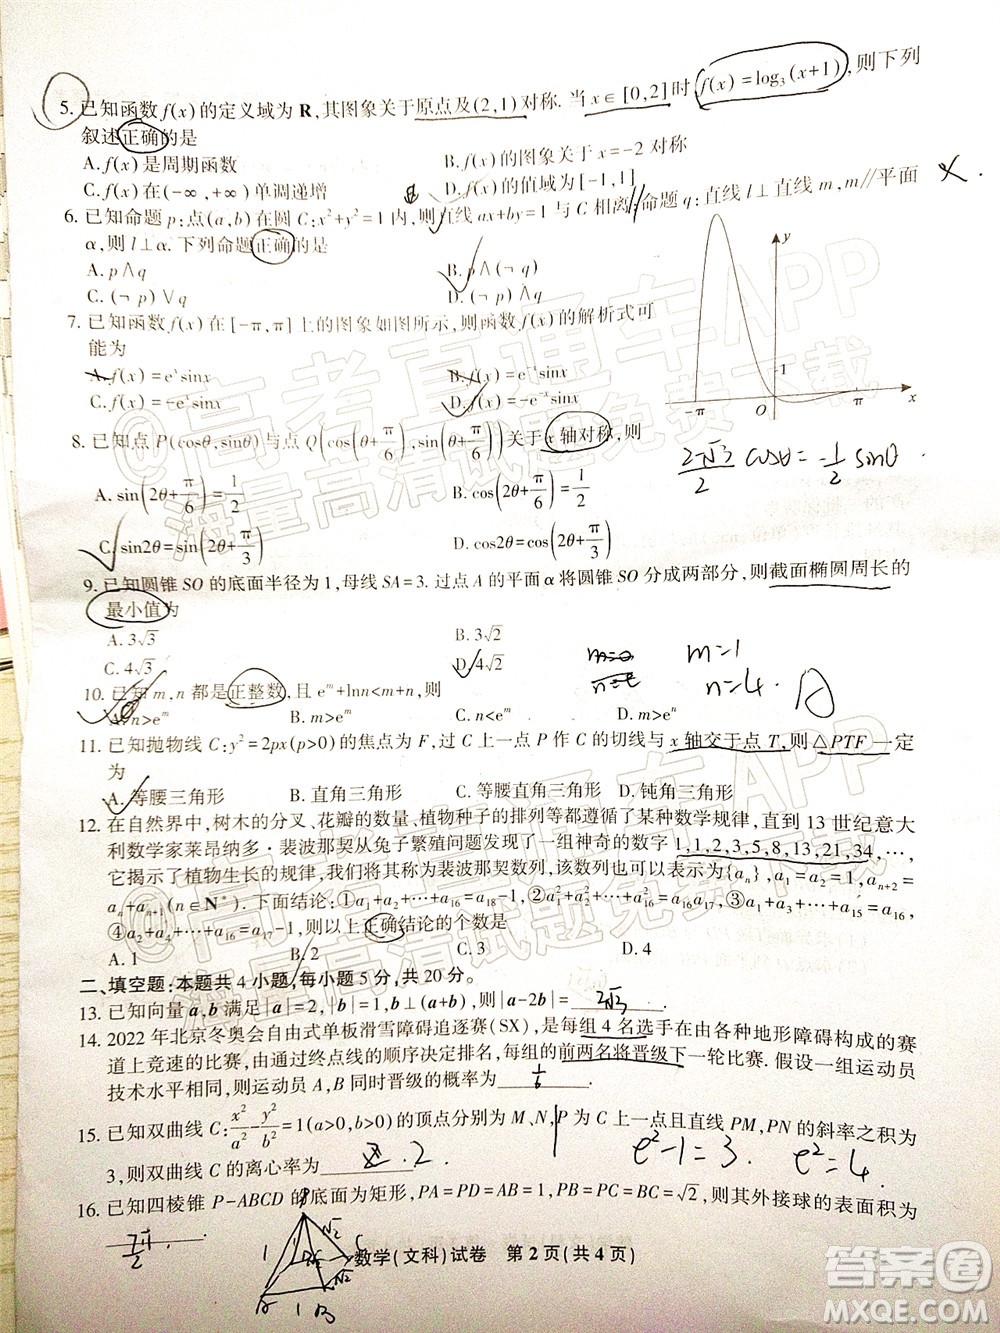 5. 已知函数f(x)的定义域为 R,其图象关于原点及(2,1)对称. 当 x∈[0,2]时 f(x)=log₃(x+1),则下列
叙述正确的是
A. f(x)是周期函数 B. f(x)的图象关于 x=-2 对称
C. f(x)在(-∞,+∞)单调递增 D. f(x)的值域为[-1,1]
6. 已知命题 p:点(a,b)在圆 C:x²+y²=1 内,则直线 ax+by=1 与 C 相离;命题 q:直线 l⊥直线 m,m//平面
α,则 l⊥α. 下列命题正确的是
A. p∧q B. p∧(¬ q)
C. (¬ p)∨q D. (¬ p)∧(¬ q)
7. 已知函数 f(x)在[-π,π]上的图象如图所示,则函数 f(x)的解析式可
能为
A. f(x)=eˣsinx B. f(x)=e⁻ˣsinx
C. f(x)=-eˣsinx D. f(x)=-e⁻ˣsinx
y
1
-π O π x
8. 已知点 P(cosθ,sinθ)与点 Q(cos(θ+π/6),sin(θ+π/6))关于 x 轴对称,则
A. sin(2θ+π/6)=1/2 B. cos(2θ+π/6)=1/2
C. sin2θ=sin(2θ+π/3) D. cos2θ=cos(2θ+π/3)
2-√3/2 cosθ=-1/2 sinθ
9. 已知圆锥 SO 的底面半径为 1,母线 SA=3. 过点 A 的平面 α 将圆锥 SO 分成两部分,则截面椭圆周长的
最小值为
A. 3√3 B. 3√2
C. 4√3 D. 4√2
m=1
n=4. A
10. 已知 m,n 都是正整数,且 eᵐ+lnn<m+n,则
A. n>eᵐ B. m>eⁿ C. n<eᵐ D. m>eⁿ
11. 已知抛物线 C:y²=2px(p>0)的焦点为 F,过 C 上一点 P 作 C 的切线与 x 轴交于点 T,则△PTF 一定
为
A. 等腰三角形 B. 直角三角形 C. 等腰直角三角形 D. 钝角三角形
12. 在自然界中,树木的分叉、花瓣的数量、植物种子的排列等都遵循了某种数学规律,直到 13 世纪意大
利数学家莱昂纳多·裴波那契从兔子繁殖问题发现了一组神奇的数字 1,1,2,3,5,8,13,21,34,…,
揭示了植物生长的规律,我们将其称为裴波那契数列,该数列可以表示为{aₙ},a₁=a₂=1,aₙ₊₂=
aₙ+aₙ₊₁(n∈N*). 下面结论:①a₁+a₂+…+a₁₄+1=a₁₆②a₁²+a₂²+…+a₁₅²=a₁₅a₁₆③a₁+a₃+…+a₁₅=a₁₆
④a₂+a₄+…+a₁₆=a₁₇-1,则以上正确结论的个数是
A. 1 B. 2 C. 3 D. 4
二、填空题:本题共 4 小题,每小题 5 分,共 20 分.
13. 已知向量 a,b 满足|a|=2,|b|=1,b⊥(a+b),则|a-2b|= 2√3
14. 2022 年北京冬奥会自由式单板滑雪障碍追逐赛(SX),是每组 4 名选手在由各种地形障碍构成的赛
道上竞速的比赛,由通过终点线的顺序决定排名,每组的前两名将晋级下一轮比赛. 假设一组运动员
技术水平相同,则运动员 A,B 同时晋级的概率为 1/6
15. 已知双曲线 C:x²/a²-y²/b²=1(a>0,b>0)的顶点分别为 M,N,P 为 C 上一点且直线 PM,PN 的斜率之积为
3,则双曲线 C 的离心率为 2. e²-1=3 e²=4
16. 已知四棱锥 P-ABCD 的底面为矩形,PA=PD=AB=1,PB=PC=BC=√2,则其外接球的表面积为
7π/2
数学(文科)试卷 第 2 页(共 4 页)
@高考直通车APP
海量高清试题免费下载
@高考直通车APP
海量高清试题免费下载
答案圈
MXQE.COM